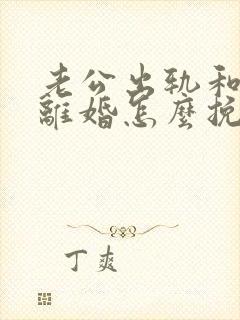 老公出轨和
離婚怎麼挽
丁爽